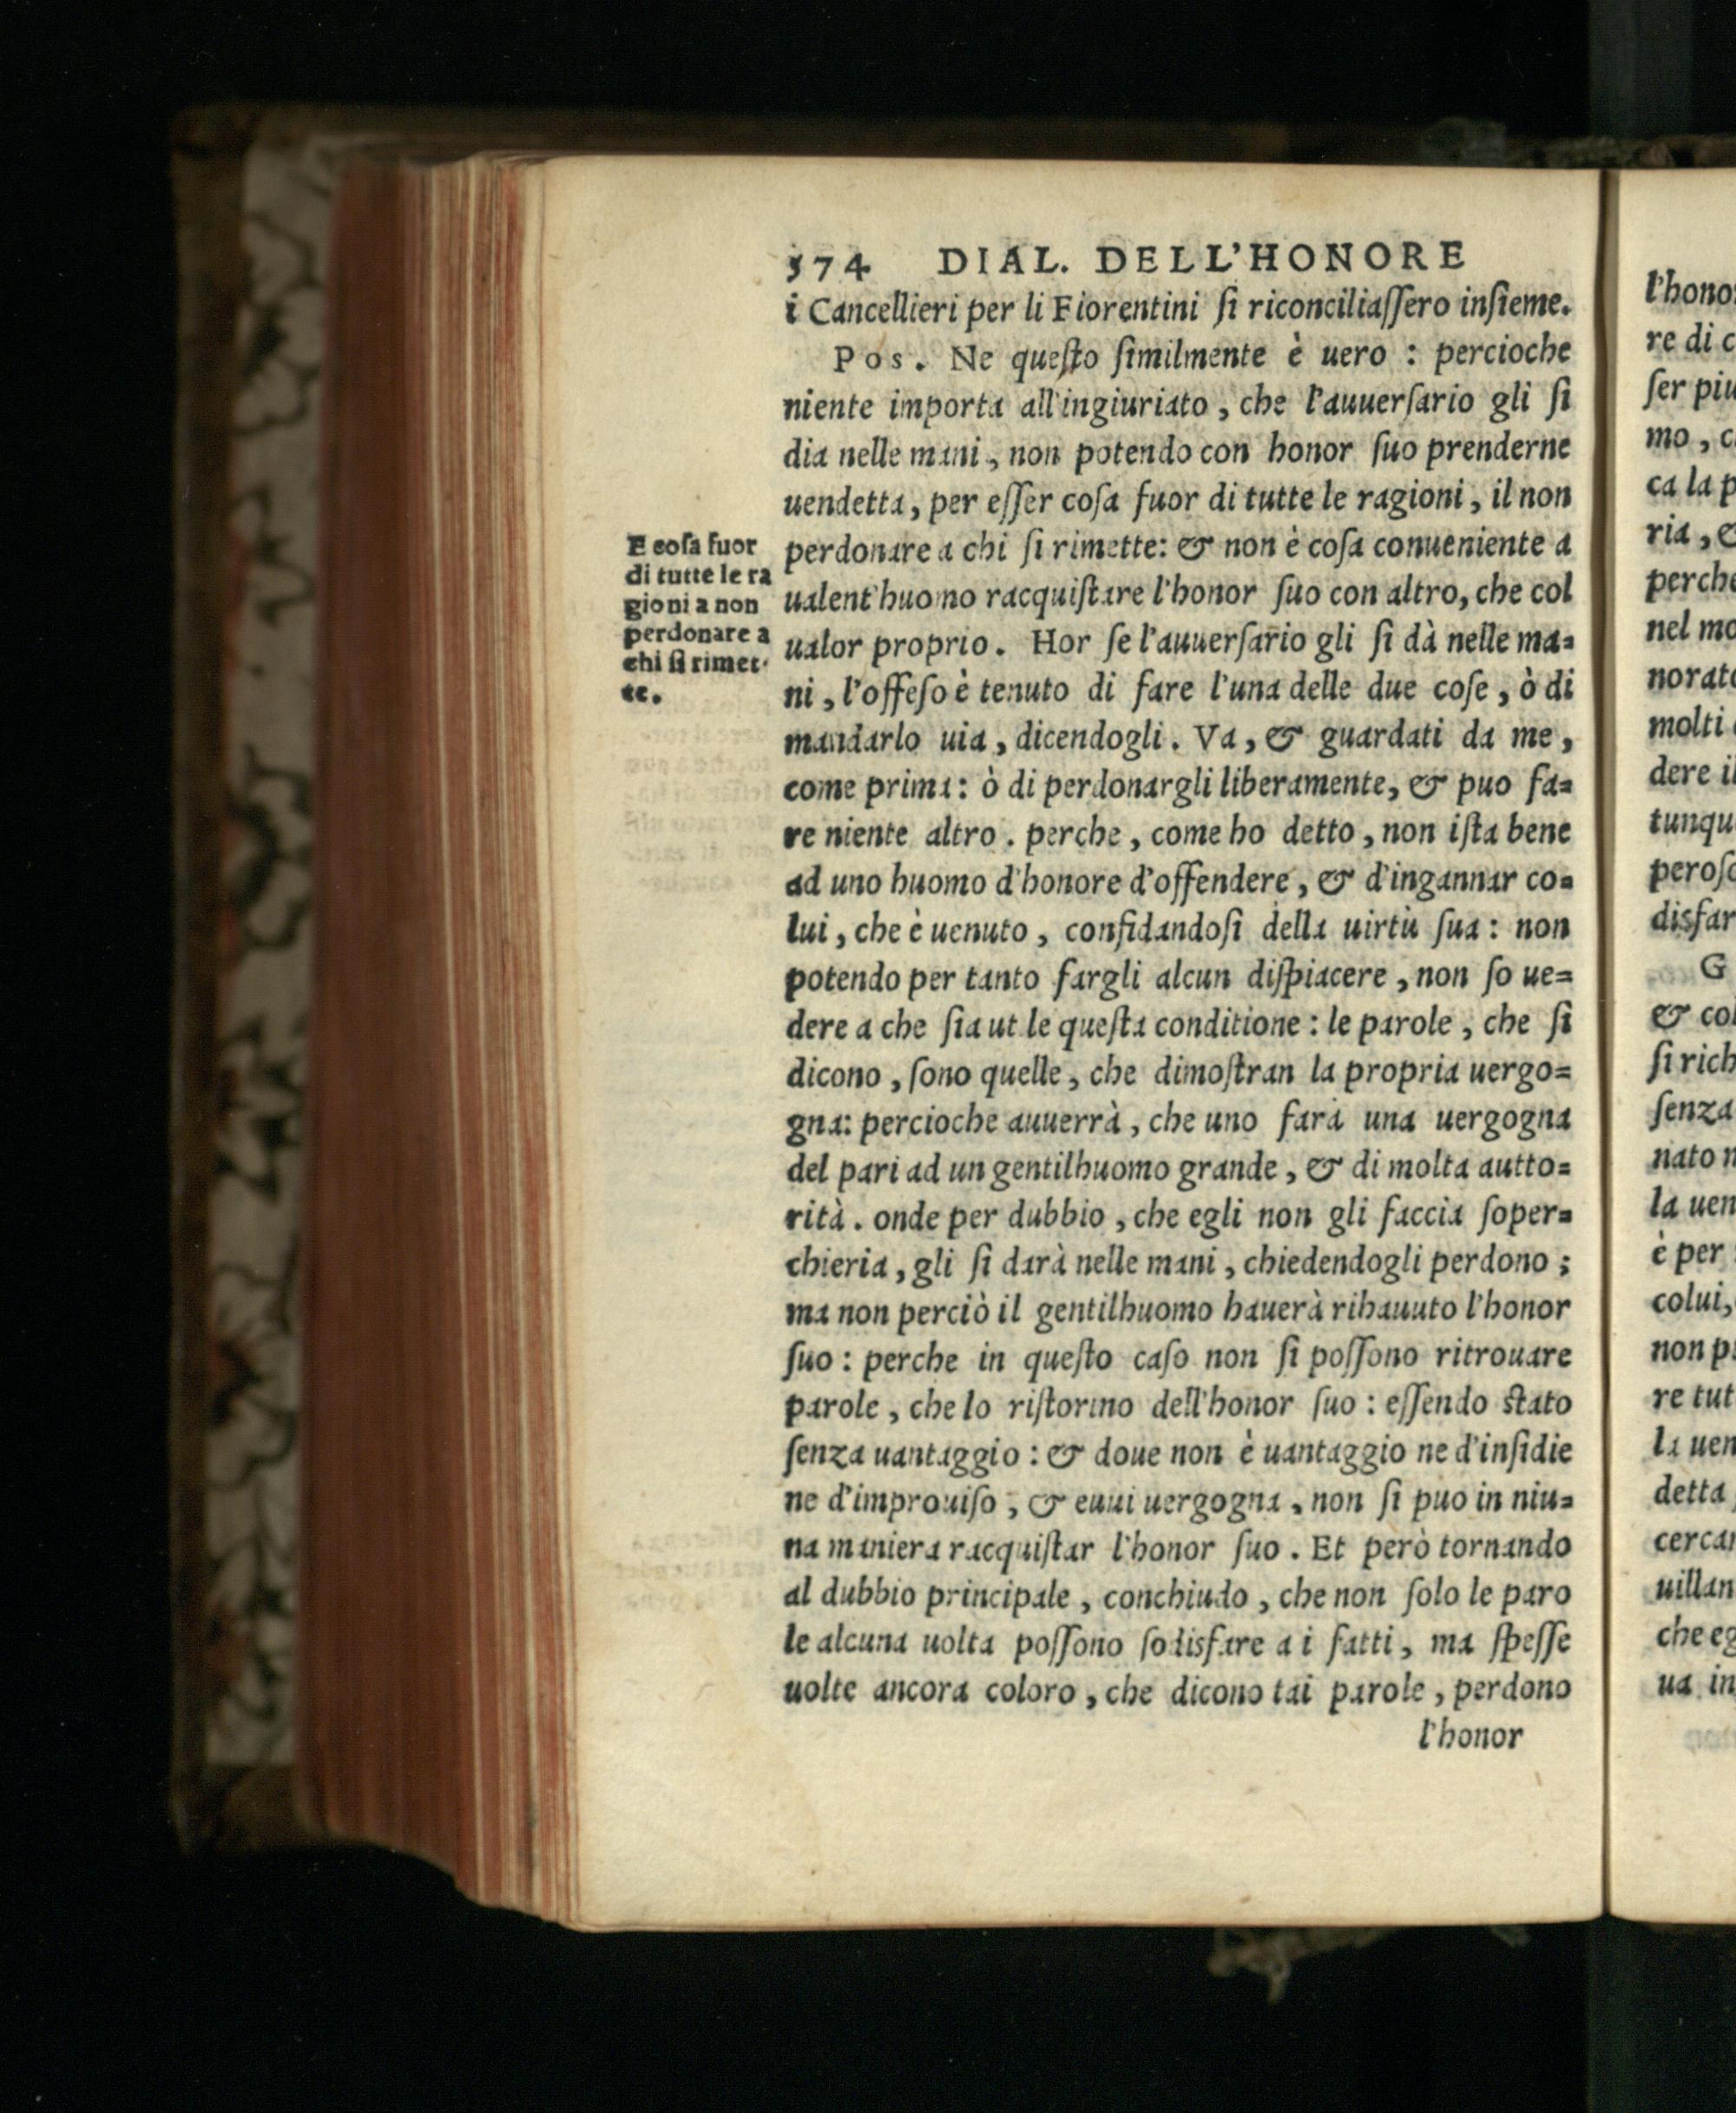 574 DIAL. DELL'HONORE
i Cancellieri per li Fiorentini ſi riconciliaſſero inſieme.
Pos. Ne queſto ſimilmente è uero : percioche
niente importa all'ingiuriato, che l'auuerſario gli ſi
dia nelle mani, non potendo con honor ſuo prenderne
uendetta, per eſſer coſa fuor di tutte le ragioni, il non
perdonare a chi ſi rimette: & non è coſa conueniente a
ualent'huomo racquiſtare l'honor ſuo con altro, che col
ualor proprio. Hor ſe l'auuerſario gli ſi dà nelle ma=
ni, l'offeſo è tenuto di fare l'una delle due coſe, ò di
mandarlo uia, dicendogli. Va, & guardati da me,
come prima: ò di perdonargli liberamente, & puo fa=
re niente altro. perche, come ho detto, non iſta bene
ad uno huomo d'honore d'offendere, & d'ingannar co=
lui, che è uenuto, confidandoſi della uirtù ſua: non
potendo per tanto fargli alcun diſpiacere, non ſo ue=
dere a che ſia ut le queſta conditione: le parole, che ſi
dicono, ſono quelle, che dimoſtran la propria uergo=
gna: percioche auuerrà, che uno farà una uergogna
del pari ad un gentilhuomo grande, & di molta autto=
rità. onde per dubbio, che egli non gli faccia ſoper=
chieria, gli ſi darà nelle mani, chiedendogli perdono;
ma non perciò il gentilhuomo hauerà rihauuto l'honor
ſuo: perche in queſto caſo non ſi poſſono ritrouare
parole, che lo riſtorino dell'honor ſuo: eſſendo ſtato
ſenza uantaggio: & doue non è uantaggio ne d'inſidie
ne d'improuiſo, & euui uergogna, non ſi puo in niu=
na maniera racquiſtar l'honor ſuo. Et però tornando
al dubbio principale, conchiudo, che non ſolo le paro
le alcuna uolta poſſono ſodisfare a i fatti, ma ſpeſſe
uolte ancora coloro, che dicono tai parole, perdono
l'honor
E coſa fuor
di tutte le ra
gioni a non
perdonare a
chi ſi rimet-
te.
l'hono
re di c
ſer piu
mo, c
ca la p
ria, &
perche
nel mo
norato
molti
dere il
tunqu
peroſo
disfar
G
& col
ſi rich
ſenza
nato n
la uen
è per
colui,
non p
re tut
la uen
detta
cercar
uillan
che eg
ua in